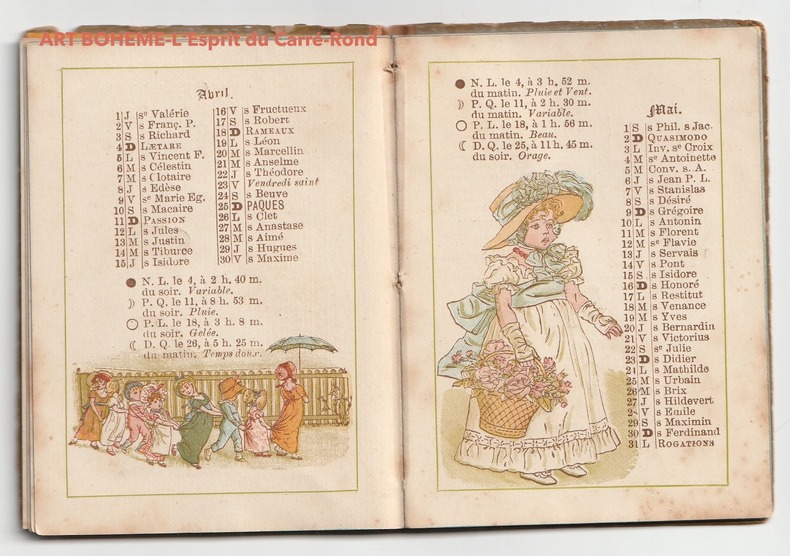 ART BOHEME-L'Esprit du Carré-Rond
Avril.
1 J sᵉ Valérie
2 V s Franç. P.
3 S s Richard
4 D LÆTARE
5 L s Vincent F.
6 M s Célestin
7 M s Clotaire
8 J s Edèse
9 V sᵉ Marie Eg.
10 S s Macaire
11 D PASSION
12 L s Jules
13 M s Justin
14 M s Tiburce
15 J s Isidore
16 V s Fructueux
17 S s Robert
18 D RAMEAUX
19 L s Léon
20 M s Marcellin
21 M s Anselme
22 J s Théodore
23 V Vendredi saint
24 S s Beuve
25 D PAQUES
26 L s Clet
27 M s Anastase
28 M s Aimé
29 J s Hugues
30 V s Maxime
● N. L. le 4, à 2 h. 40 m.
du soir. Variable.
☽ P. Q. le 11, à 8 h. 53 m.
du soir. Pluie.
○ P. L. le 18, à 3 h. 8 m.
du soir. Gelée.
☾ D. Q. le 26, à 5 h. 25 m.
du matin. Temps doux.
● N. L. le 4, à 3 h. 52 m.
du matin. Pluie et Vent.
☽ P. Q. le 11, à 2 h. 30 m.
du matin. Variable.
○ P. L. le 18, à 1 h. 56 m.
du matin. Beau.
☾ D. Q. le 25, à 11 h. 45 m.
du soir. Orage.
Mai.
1 S s Phil. s Jac.
2 D QUASIMODO
3 L Inv. sᵉ Croix
4 M sᵉ Antoinette
5 M Conv. s. A.
6 J s Jean P. L.
7 V s Stanislas
8 S s Désiré
9 D s Grégoire
10 L s Antonin
11 M s Florent
12 M sᵉ Flavie
13 J s Servais
14 V s Pont
15 S s Isidore
16 D s Honoré
17 L s Restitut
18 M s Venance
19 M s Yves
20 J s Bernardin
21 V s Victorius
22 S sᵉ Julie
23 D s Didier
24 L s Mathilde
25 M s Urbain
26 M s Brix
27 J s Hildevert
2 V s Emile
29 S s Maximin
30 D s Ferdinand
31 L ROGATIONS